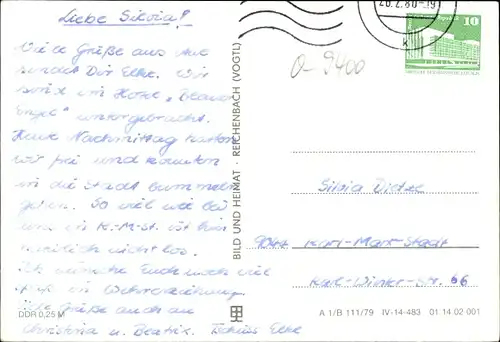 Liebe Silvia!
Viele Grüße aus Aue
sendet Dir Elke. Wir
sind im Hotel „Blauer
Engel" untergebracht.
Heute Nachmittag hatten
wir frei und konnten
in die Stadt bummeln
gehen. So viel wie bei
uns in K.-M.-St. ist hier
natürlich nicht los.
Ich wünsche Euch noch viel
in Wehrerziehung.
Viele Grüße auch an
Christina u. Beatrix. Tschüss Elke
DDR 0,25 M
BILD UND HEIMAT · REICHENBACH (VOGTL)
10
k
O-9400
Silvia Dietze
Karl-Marx-Stadt
Str. 66
A 1/B 111/79 IV-14-483 01 14 02 001